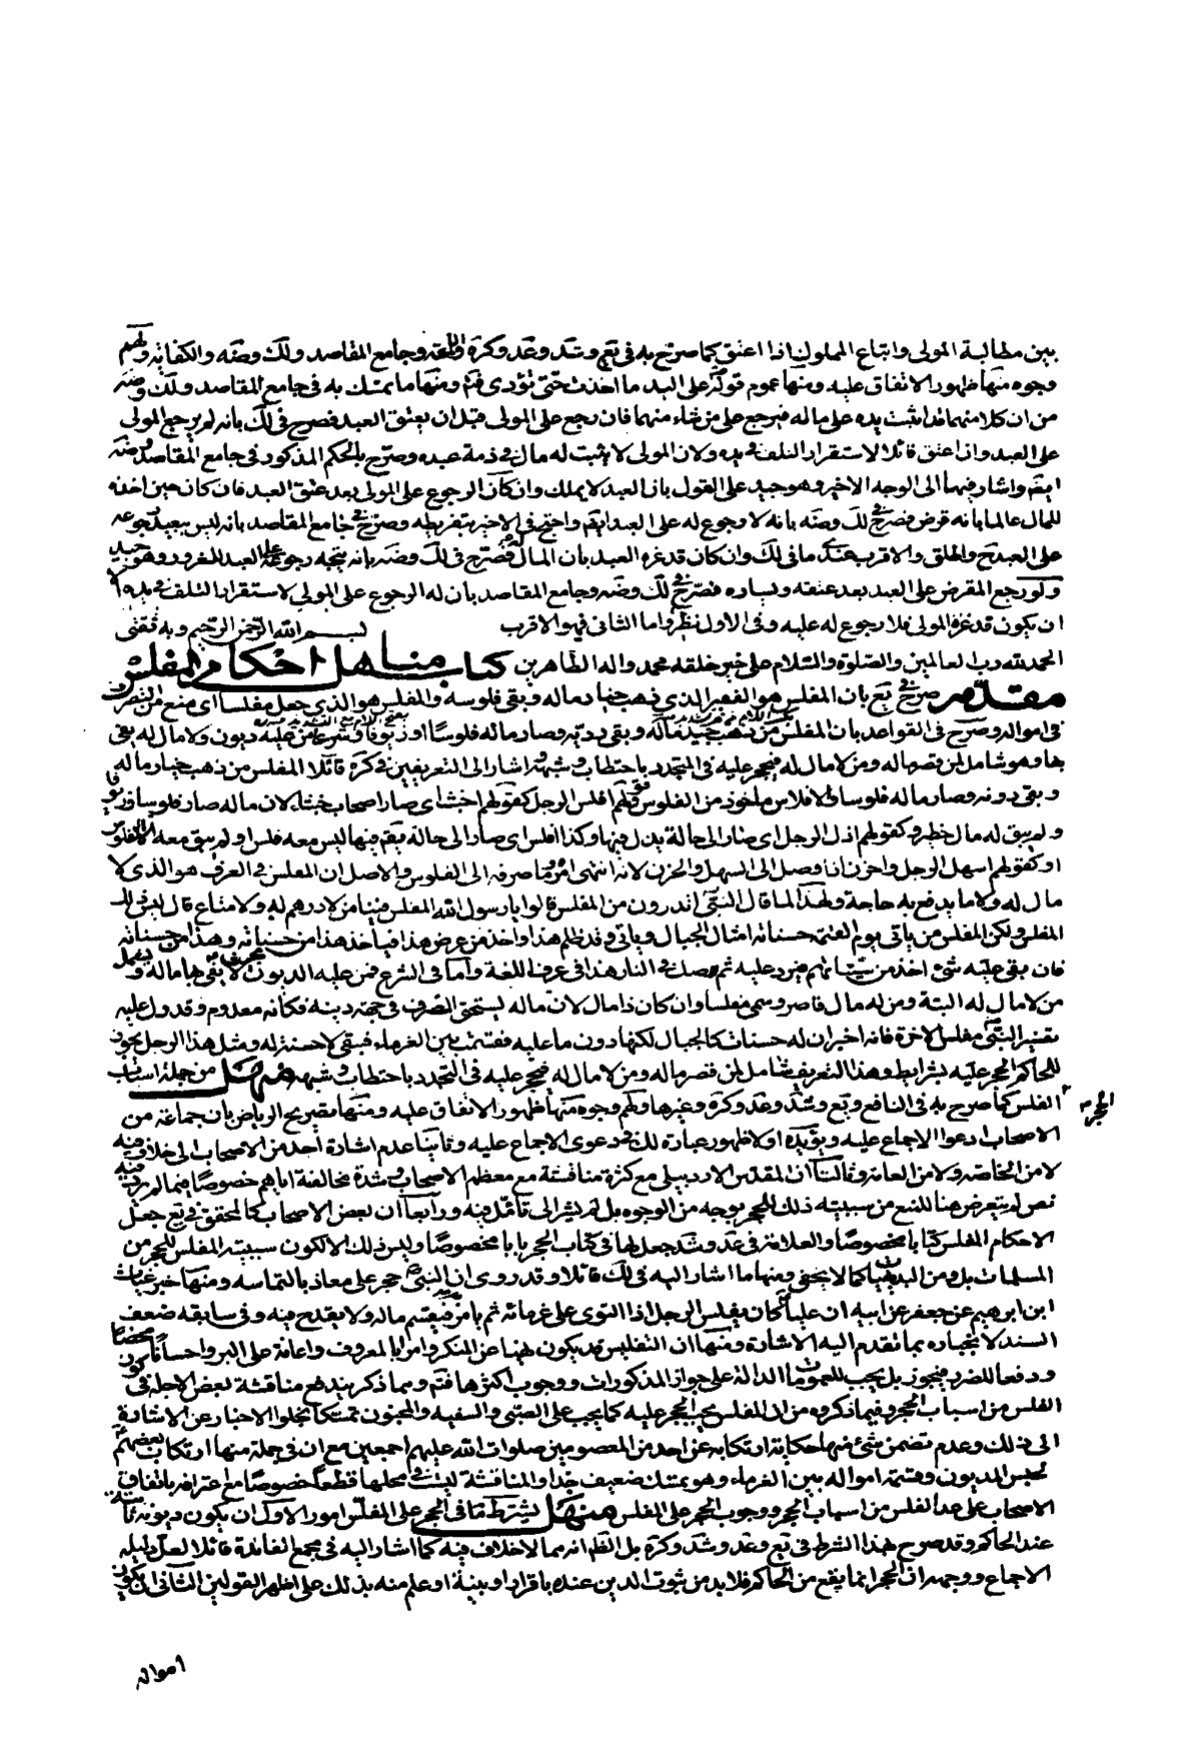 بين مطالبة المولى واتباع المملوك اذا اعتق كما صرح به فى يع وشد وعد وكرة وجامع المقاصد ولك وضه والكفاية ولهم
وجوه منها ظهور الاتفاق عليه ومنها عموم قوله ص على اليد ما اخذت حتى تؤدى فتم ومنها ما تمسك به فى جامع المقاصد ولك وضه
من ان كلا منهما قد اثبت يده على ماله فيرجع على من شاء منهما فان رجع على المولى قبل ان يعتق العبد فصرح فى لك بانه لم يرجع المولى
على العبد وان اعتق قائلا لاستقرار التلف فى يده ولان المولى لا يثبت له مال فى ذمة عبده وصرح بالحكم المذكور فى جامع المقاصد وضه
ايضم واشار فيهما الى الوجه الاخير وهو جيد على القول بان العبد لا يملك وان كان الرجوع على المولى بعد عتق العبد فان كان حين اخذه
للمال عالما بانه قرض فصرح فى لك وضه بانه لا رجوع له على العبد ايضم واحتج فى الاخير بتفريطه وصرح فى جامع المقاصد بانه ليس ببعيد رجوعه
على العبد ح واطلق والاقرب عندى ما فى لك وان كان قد غره العبد بان المال له فصرح فى لك وضه بانه يتجه رجوعه على العبد للغرور وهو جيد
ولو رجع المقرض على العبد بعد عتقه ويساره فصرح فى لك وضه وجامع المقاصد بان له الرجوع على المولى لاستقرار التلف فى يده الا
ان يكون قد غره المولى فلا رجوع له عليه وفى الاول نظر واما الثانى فهو الاقرب بسم الله الرحمن الرحيم وبه ثقتى
الحمد لله رب العالمين والصلوة والسلام على خير خلقه محمد واله الطاهرين كتاب مناهل احكام المفلس
مقدمة صرح فى يع بان المفلس هو الفقير الذى ذهب خيار ماله وبقى فلوسه والمفلس هو الذى جعل مفلسا اى منع من التصرف
فى امواله وصرح فى القواعد بان المفلس من ذهب جيد ماله وبقى رديه وصار ماله فلوسا او زيوفا وشرعا من عليه ديون ولا مال له يفى
بها وهو شامل لمن قصر ماله ومن لا مال له فيحجر عليه فى المتجدد باحتطاب وشبهه واشار الى التعريفين فى كرة قائلا المفلس من ذهب خيار ماله
وبقى دونه وصار ماله فلوسا والافلاس ماخوذ من الفلوس فقولهم افلس الرجل كقولهم اخبث اى صار اصحابه خبثاء لان ماله صار فلوسا وزيوفا
ولم يبق له مال خطير وكقولهم اذل الرجل اى صار الى حالة يذل فيها وكذا افلس اى صار الى حالة يقم فيها ليس معه فلس او لم يبق معه الا الفلوس
او كقولهم اسهل الرجل واحزن اذا وصل الى السهل والحزن لانه انتهى امره وما صرفه الى الفلوس والاصل ان المفلس فى العرف هو الذى لا
مال له ولا ما يدفع به حاجة ولهذا لما قال النبى ص اتدرون من المفلس قالوا يا رسول الله المفلس فينا من لا درهم له ولا متاع قال ليس ذلك
المفلس ولكن المفلس من ياتى يوم القيمة حسناته امثال الجبال وياتى وقد ظلم هذا واخذ من عرض هذا فياخذ هذا من حسناته وهذا من حسناته
فان بقى عليه شئ اخذ من سيئاتهم فيرد عليه ثم يصلى فى النار هذا فى عرف اللغة واما فى الشرع فمن عليه الديون لا يفى بها ماله ويشمل
من لا مال له البتة ومن له مال قاصر وسمى مفلسا وان كان ذا مال لان ماله يستحق الصرف فى جهة دينه فكانه معدوم وقد دل عليه
تفسير النبى ص مفلس الاخرة فانه اخبر ان له حسنات كالجبال لكنها دون ما عليه فقسمت بين الغرماء فبقى لا حسنة له ومثل هذا الرجل يجوز
للحاكم الحجر عليه بشرايط وهذا التعريف شامل لمن قصر ماله ومن لا مال له فيحجر عليه فى المتجدد باحتطاب وشبهه منهل من جملة اسباب
الحجر
الفلس كما صرح به فى النافع ويع وشد وعد وكرة وغيرها ولهم وجوه منها ظهور الاتفاق عليه ومنها تصريح الرياض بان جماعة من
الاصحاب ادعوا الاجماع عليه ويؤيده اولا ظهور عبارة لك فى دعوى الاجماع عليه وثانيا عدم اشارة احد من الاصحاب الى خلاف فيه
لا من الخاصة ولا من العامة وثالثا ان المقدس الاردبيلى مع كثرة مناقشة مع معظم الاصحاب وشدة مخالفته اياهم خصوصا فيما لم يرد فيه
نص لم يتعرض هنا للمنع من سببيته ذلك للحجر بوجه من الوجوه بل لم يشر الى تامل فيه ورابعا ان بعض الاصحاب كالمحقق فى يع جعل
لاحكام المفلس كتابا مخصوصا والعلامة فى عد وشد جعل لها فى كتاب الحجر بابا مخصوصا وليس ذلك الا لكون سببية الفلس للحجر من
المسلمات بل ومن البديهيات كما لا يخفى ومنها ما اشار اليه فى لك قائلا وقد روى ان النبى ص حجر على معاذ بالتماسه ومنها خبر غياث
ابن ابراهيم عن جعفر عن ابيه ان عليا ع كان يفلس الرجل اذا التوى على غرمائه ثم يامر به فيقسم ماله ولا يقدح فيه وفى سابقه ضعف
السند لانجباره بما تقدم اليه الاشارة ومنها ان التفليس قد يكون نهيا عن المنكر وامرا بالمعروف واعانة على البر واحسانا محضا
ودفعا للضرر فيجوز بل يجب للعمومات الدالة على جواز المذكورات ووجوب اكثرها فتم وبما ذكر يندفع مناقشة بعض الاجلة فى كون
الفلس من اسباب الحجر وفيما ذكروه من ان المفلس يجب الحجر عليه كما يجب على الصبى والسفيه والمجنون تمسكا بخلو الاخبار عن الاشارة
الى ذلك وعدم تضمن شئ منها حكاية ارتكابه عن احد من المعصومين صلوات الله عليهم اجمعين مع ان فى جملة منها ارتكاب بعضهم ع
لحبس المديون وقسمة امواله بين الغرماء وهو تمسك ضعيف جدا والمناقشة ليست فى محلها قطعا خصوصا مع اعترافه باتفاق
الاصحاب على عد الفلس من اسباب الحجر ووجوب الحجر على المفلس منهل يشترط فى الحجر على المفلس امور الاول ان يكون ديونه ثابتة
عند الحاكم وقد صرح بهذا الشرط فى يع وعد وشد وكرة بل الظم انه مما لا خلاف فيه كما اشار اليه فى مجمع الفائدة قائلا لعل دليله
الاجماع ووجهه ان الحجر انما يقع من الحاكم فلا بد من ثبوت الدين عنده باقرار او بينة او علم منه بذلك على اظهر القولين الثانى ان يكون
امواله